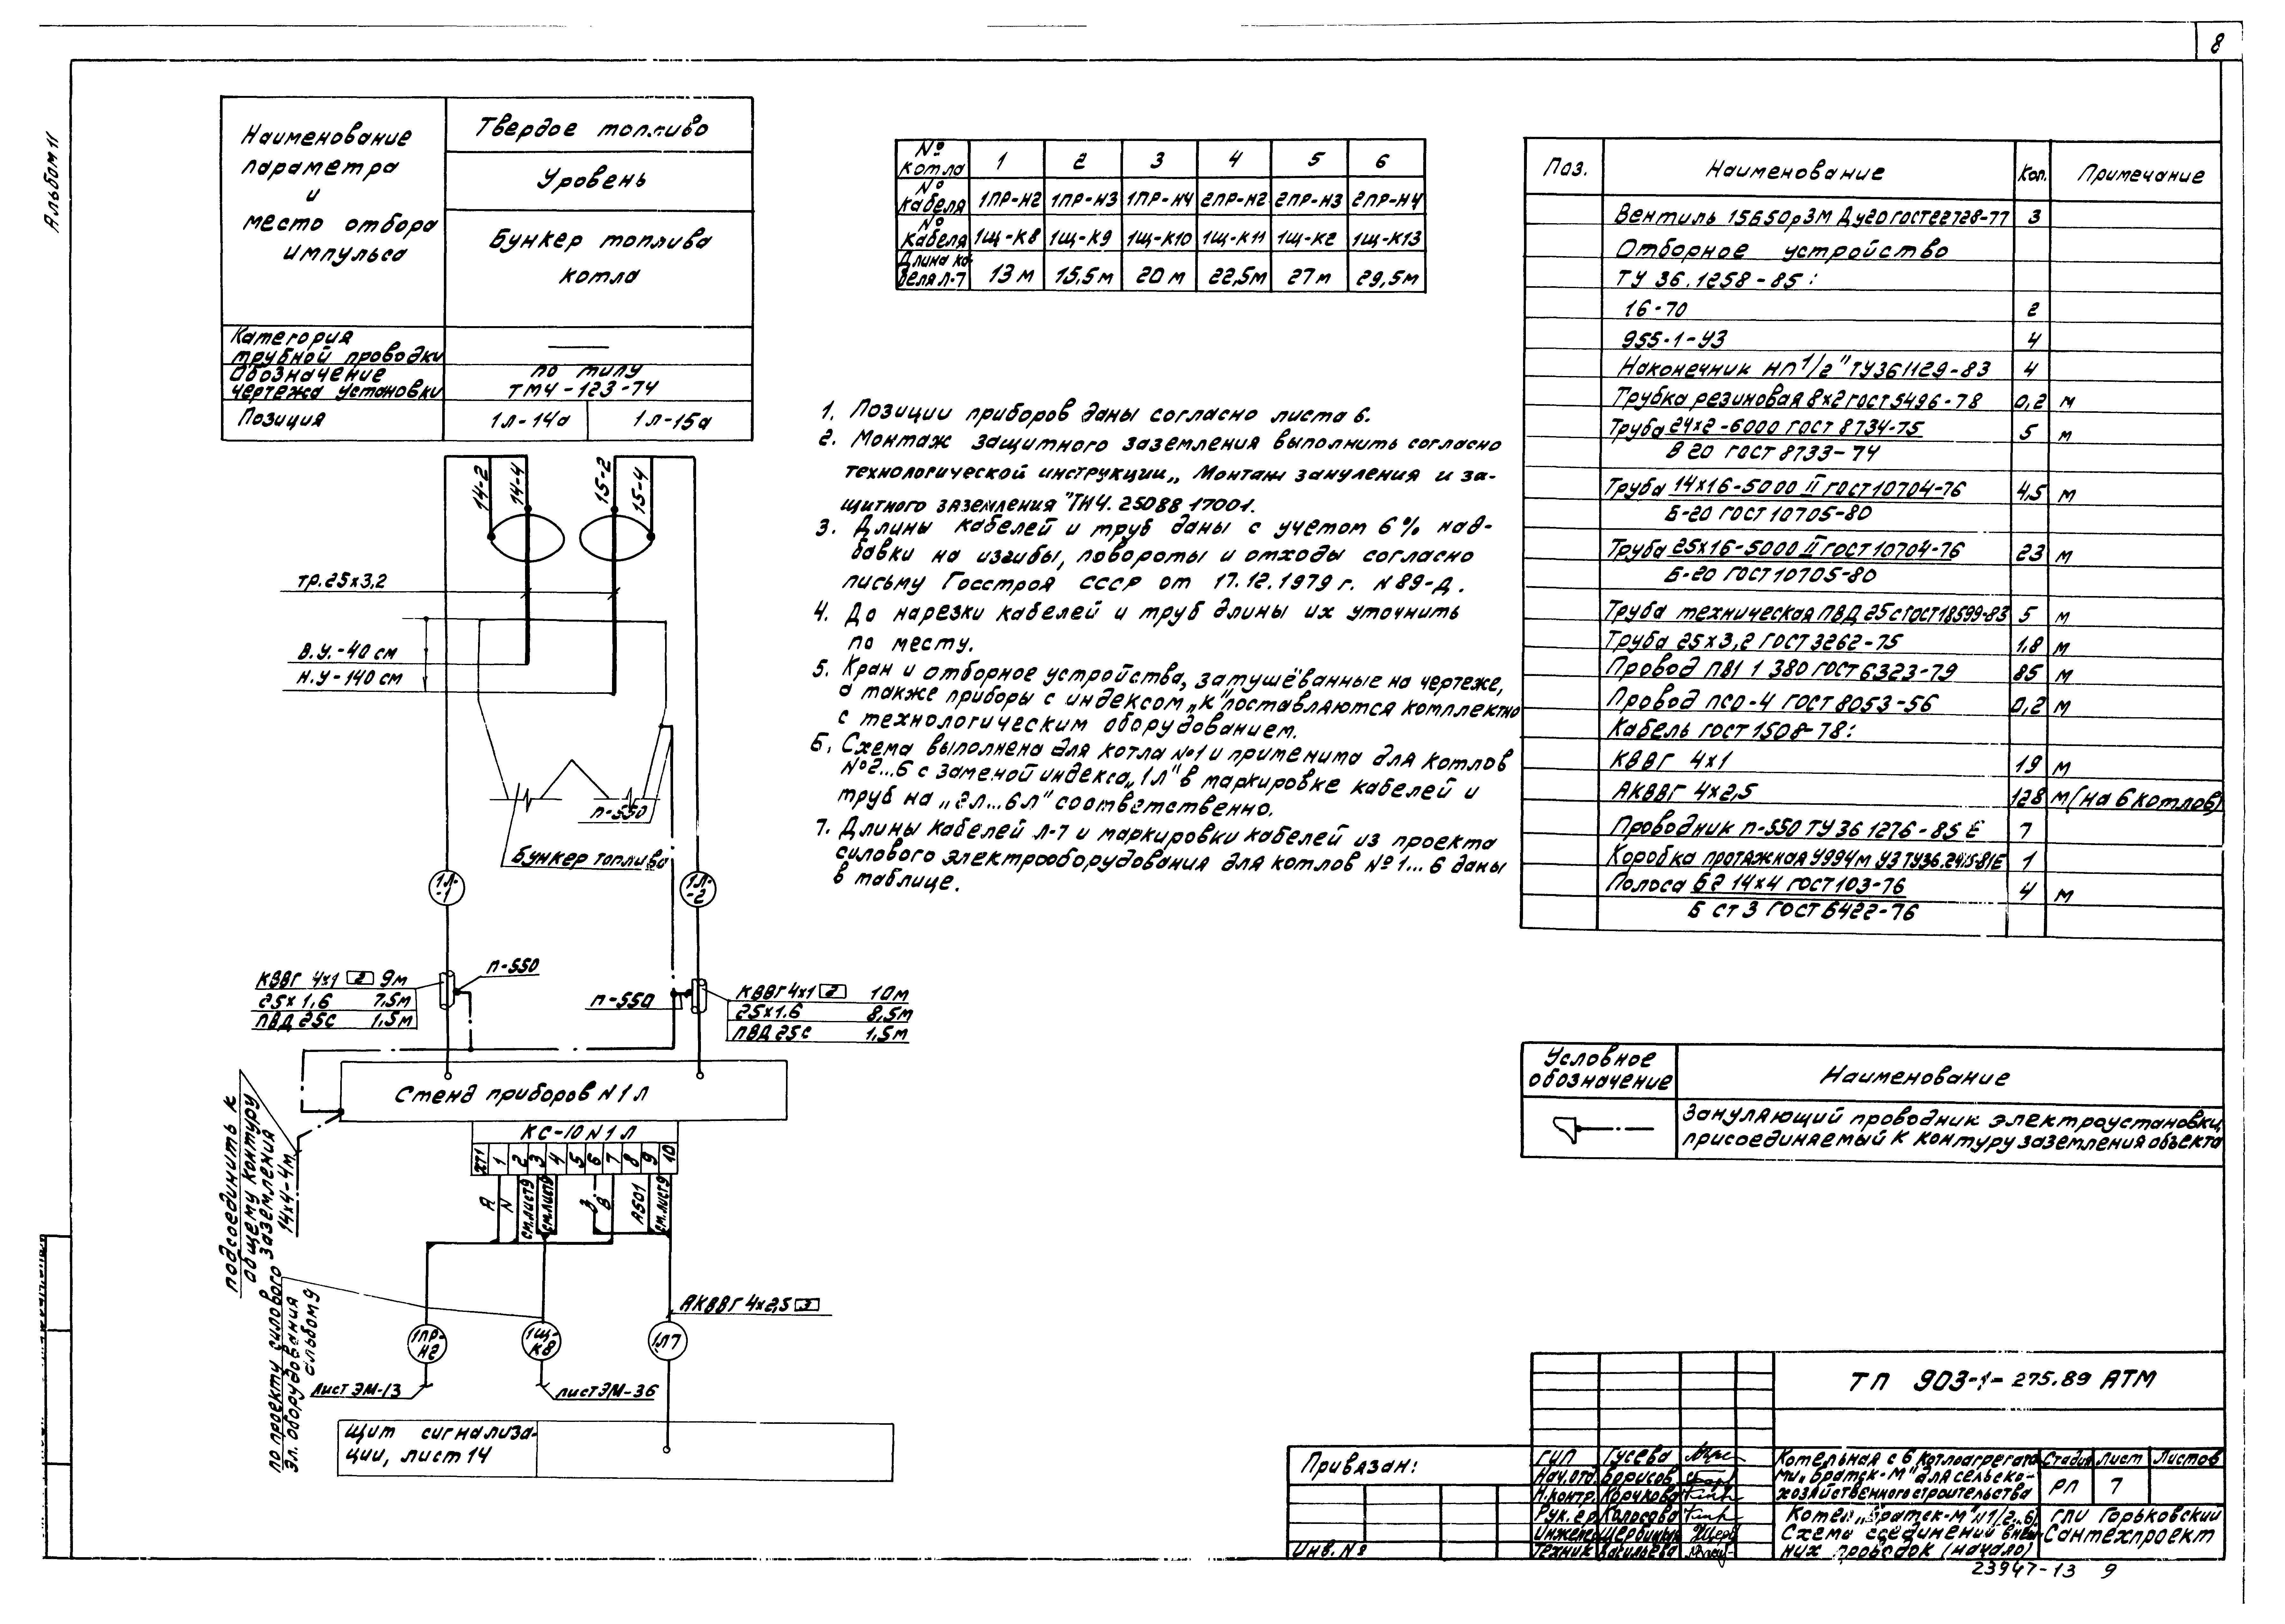 8
Альбом 11
Наименование
параметра
и
место отбора
импульса
Твердое топливо
Уровень
Бункер топлива
котла
Категория
трубной проводки
Обозначение
чертежа установки
по типу
ТМ4-123-74
Позиция
1л-14а
1л-15а
14-2
14-4
15-2
15-4
тр.25х3,2
В.У.-40 см
Н.У-140 см
П-550
Бункер топлива
1л-
-1
1л-
-2
КВВГ 4х1 2 9м
25х1,6 7,5м
ПВД 25С 1,5м
П-550
П-550
КВВГ4х1 2 10м
25х1.6 8,5м
ПВД 25С 1,5м
Стенд приборов N1л
КС-10 N1Л
ХТ1 1 2 3 4 5 6 7 8 9 10
А
N
см.лист9
см.лист9
З
В
А501
см.лист9
подсоединить к
общему контуру
заземления
14х4-4м
по проекту силового
эл. оборудования
альбом 9
АКВВГ 4х2,5 3
1ПР-
Н2
1Щ-
К8
1Л7
Лист ЭМ-13
лист ЭМ-36
Щит сигнализа-
ции, лист 14
№
котла 1 2 3 4 5 6
№
кабеля 1ПР-Н2 1ПР-Н3 1ПР-Н4 2ПР-Н2 2ПР-Н3 2ПР-Н4
№
кабеля 1Щ-К8 1Щ-К9 1Щ-К10 1Щ-К11 1Щ-К2 1Щ-К13
Длина ка-
беля Л-7 13 м 15,5 м 20 м 22,5м 27 м 29,5м
1. Позиции приборов даны согласно листа 6.
2. Монтаж защитного заземления выполнить согласно
технологической инструкции „Монтаж зануления и за-
щитного заземления" ТИ4. 25088 17001.
3. Длины кабелей и труб даны с учетом 6% над-
бавки на изгибы, повороты и отходы согласно
письму Госстроя СССР от 17.12.1979 г. N 89-Д.
4. До нарезки кабелей и труб длины их уточнить
по месту.
5. Кран и отборное устройства, затушёванные на чертеже,
а также приборы с индексом „К" поставляются комплектно
с технологическим оборудованием.
6. Схема выполнена для котла №1 и применима для котлов
№2...6 с заменой индекса „1л" в маркировке кабелей и
труб на „2л...6л" соответственно.
7. Длины кабелей Л-7 и маркировки кабелей из проекта
силового электрооборудования для котлов №1...6 даны
в таблице.
Поз. Наименование Кол. Примечание
Вентиль 15Б50р3М Ду20 ГОСТ22728-77 3
Отборное устройство
ТУ 36.1258-85:
16-70 2
955-1-У3 4
Наконечник НП 1/2" ТУ361129-83 4
Трубка резиновая 8х2 ГОСТ5496-78 0,2 м
Труба 24х2-6000 ГОСТ 8734-75 5 м
В 20 ГОСТ 8733-74
Труба 14х16-5000 II ГОСТ10704-76 4,5 м
Б-20 ГОСТ 10705-80
Труба 25х16-5000 II ГОСТ10704-76 23 м
Б-20 ГОСТ10705-80
Труба техническая ПВД 25с ГОСТ18599-83 5 м
Труба 25х3,2 ГОСТ3262-75 1,8 м
Провод ПВ1 1 380 ГОСТ6323-79 85 м
Провод ПСО-4 ГОСТ 8053-56 0,2 м
Кабель ГОСТ 1508-78:
КВВГ 4х1 19 м
АКВВГ 4х2,5 128 м(на 6 котлов)
Проводник П-550 ТУ 36 1276-85 Е 7
Коробка протяжная У994м У3 ТУ36.2415-81Е 1
Полоса Б2 14х4 ГОСТ103-76 4 м
Б ст 3 ГОСТ 6422-76
Условное
обозначение
Наименование
Зануляющий проводник электроустановки,
присоединяемый к контуру заземления объекта
ТП 903-1-275.89 АТМ
Привязан:
Инв. №
ГИП Гусева
Нач.отд. Борисов
Н.контр. Корчкова
Рук.гр. Колосова
Инжене Щербицкая
Техник Васильева
Котельная с 6 котлоагрегата-
ми „Братск-М" для сельско-
хозяйственного строительства
Стадия Лист Листов
РП 7
Котел „Братск-М" N1(2...6).
Схема соединений внеш-
них проводок (начало)
ГПИ Горьковский
Сантехпроект
23947-13 9